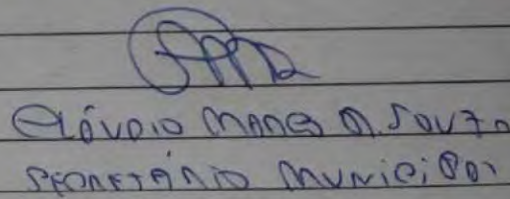 CLÁUDIO MARCO A. SOUZA
SECRETÁRIO MUNICIPAL